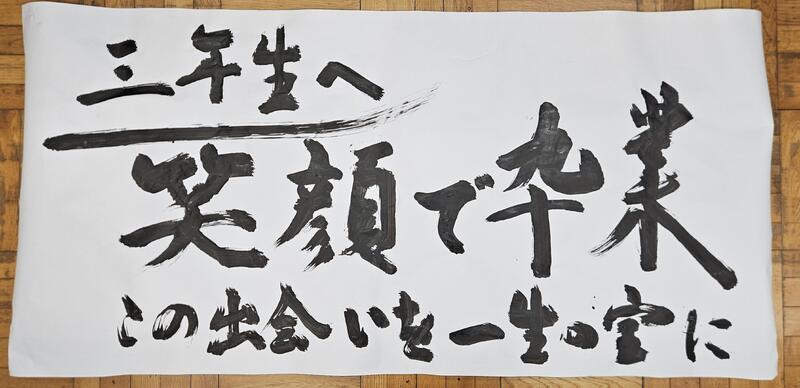 三年生へ
笑顔で卆業
この出会いを一生の宝に